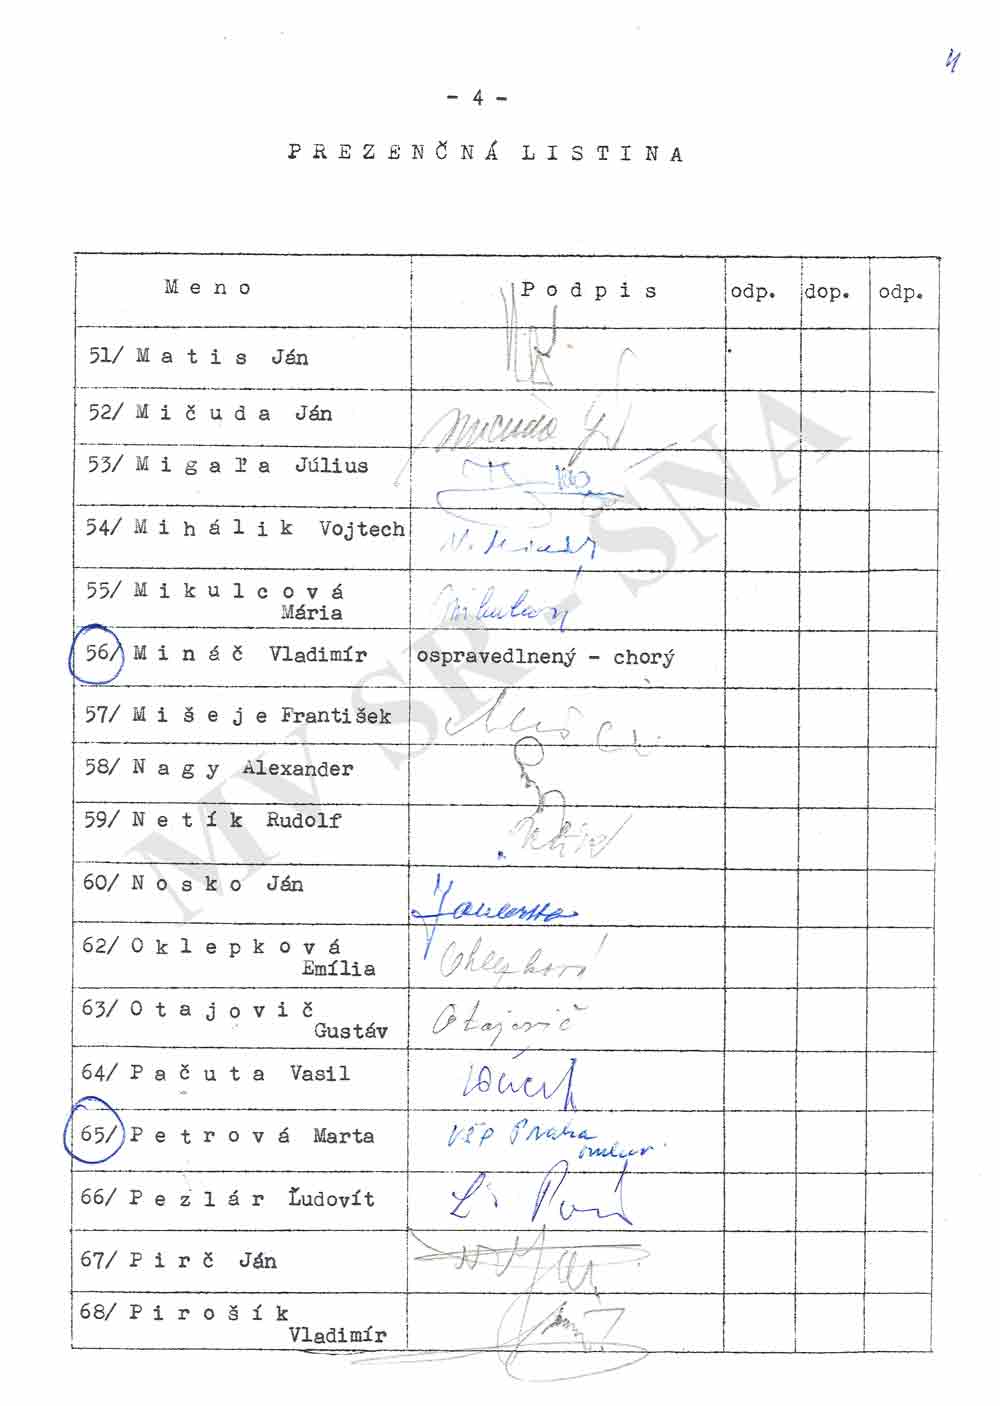 4
- 4 -
P R E Z E N Č N Á  L I S T I N A
M e n o  P o d p i s  odp.  dop.  odp.
51/ M a t i s  Ján
52/ M i č u d a  Ján  Mičuda J
53/ M i g a ľ a  Július
54/ M i h á l i k  Vojtech
55/ M i k u l c o v á
Mária
56/ M i n á č  Vladimír  ospravedlnený - chorý
57/ M i š e j e František
58/ N a g y  Alexander
59/ N e t í k  Rudolf
60/ N o s k o  Ján
62/ O k l e p k o v á
Emília  Oklepková
63/ O t a j o v i č
Gustáv  Otajovič
64/ P a č u t a  Vasil
65/ P e t r o v á  Marta  Praha
66/ P e z l á r  Ľudovít
67/ P i r č  Ján
68/ P i r o š í k
Vladimír
MV SR - SNA